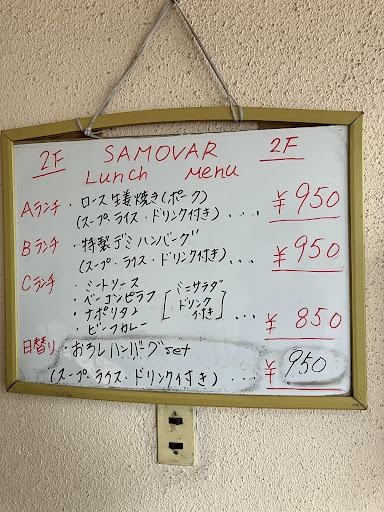 2F SAMOVAR 2F
Lunch Menu
Aランチ ・ロース生姜焼き(ポーク)
(スープ・ライス・ドリンク付き)... ¥950
Bランチ ・特製デミハンバーグ
(スープ・ライス・ドリンク付き)... ¥950
Cランチ ・ミートソース
・ベーコンピラフ
・ナポリタン
・ビーフカレー
[ミニサラダ
ドリンク
付き] ... ¥850
日替り ・おろしハンバーグset
(スープ・ライス・ドリンク付き)... ¥950